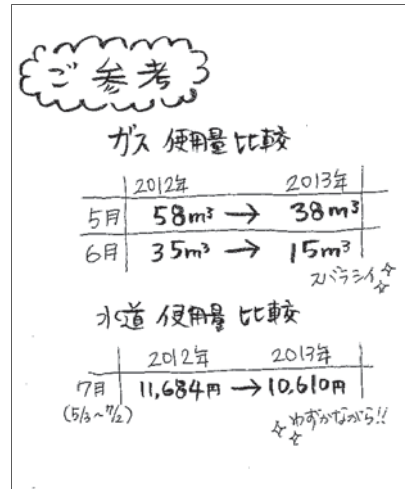 ご参考
ガス 使用量 比較
2012年 2013年
5月 58m³ → 38m³
6月 35m³ → 15m³
スバラシイ
水道 使用量 比較
2012年 2013年
7月 11,684円 → 10,610円
(5/3~7/2)
わずかながら!!